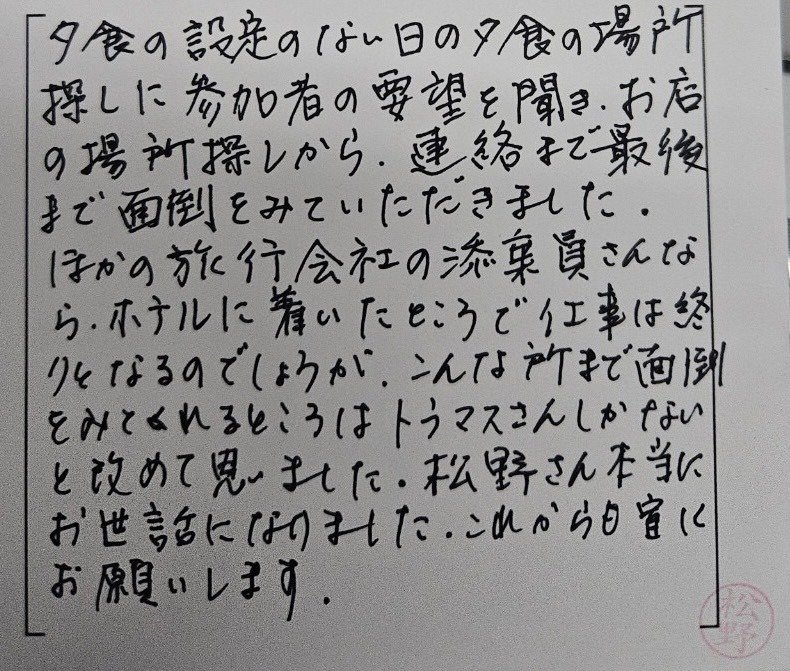 夕食の設定のない日の夕食の場所
探しに参加者の要望を聞き、お店
の場所探しから、連絡まで最後
まで面倒をみていただきました。
ほかの旅行会社の添乗員さんな
ら、ホテルに着いたところで仕事は終
りとなるのでしょうが、こんな所まで面倒
をみてくれるところはトラマスさんしかない
と改めて思いました。松野さん本当に
お世話になりました。これからも宜しく
お願いします。
松野